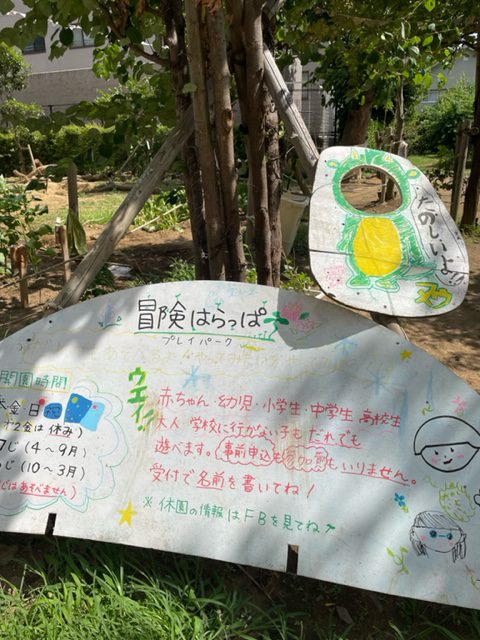 たのしいよ!!
冒険はらっぱ
プレイパーク
開園時間
水・金・日・祝
2金は休み)
(4〜9月)
(10〜3月)
はあそべません)
ウエイ!!
赤ちゃん・幼児・小学生・中学生・高校生
大人 学校に行かない子も だれでも
遊べます。事前申込も もいりません。
受付で名前を書いてね!
※ 休園の情報はFBを見てね♪